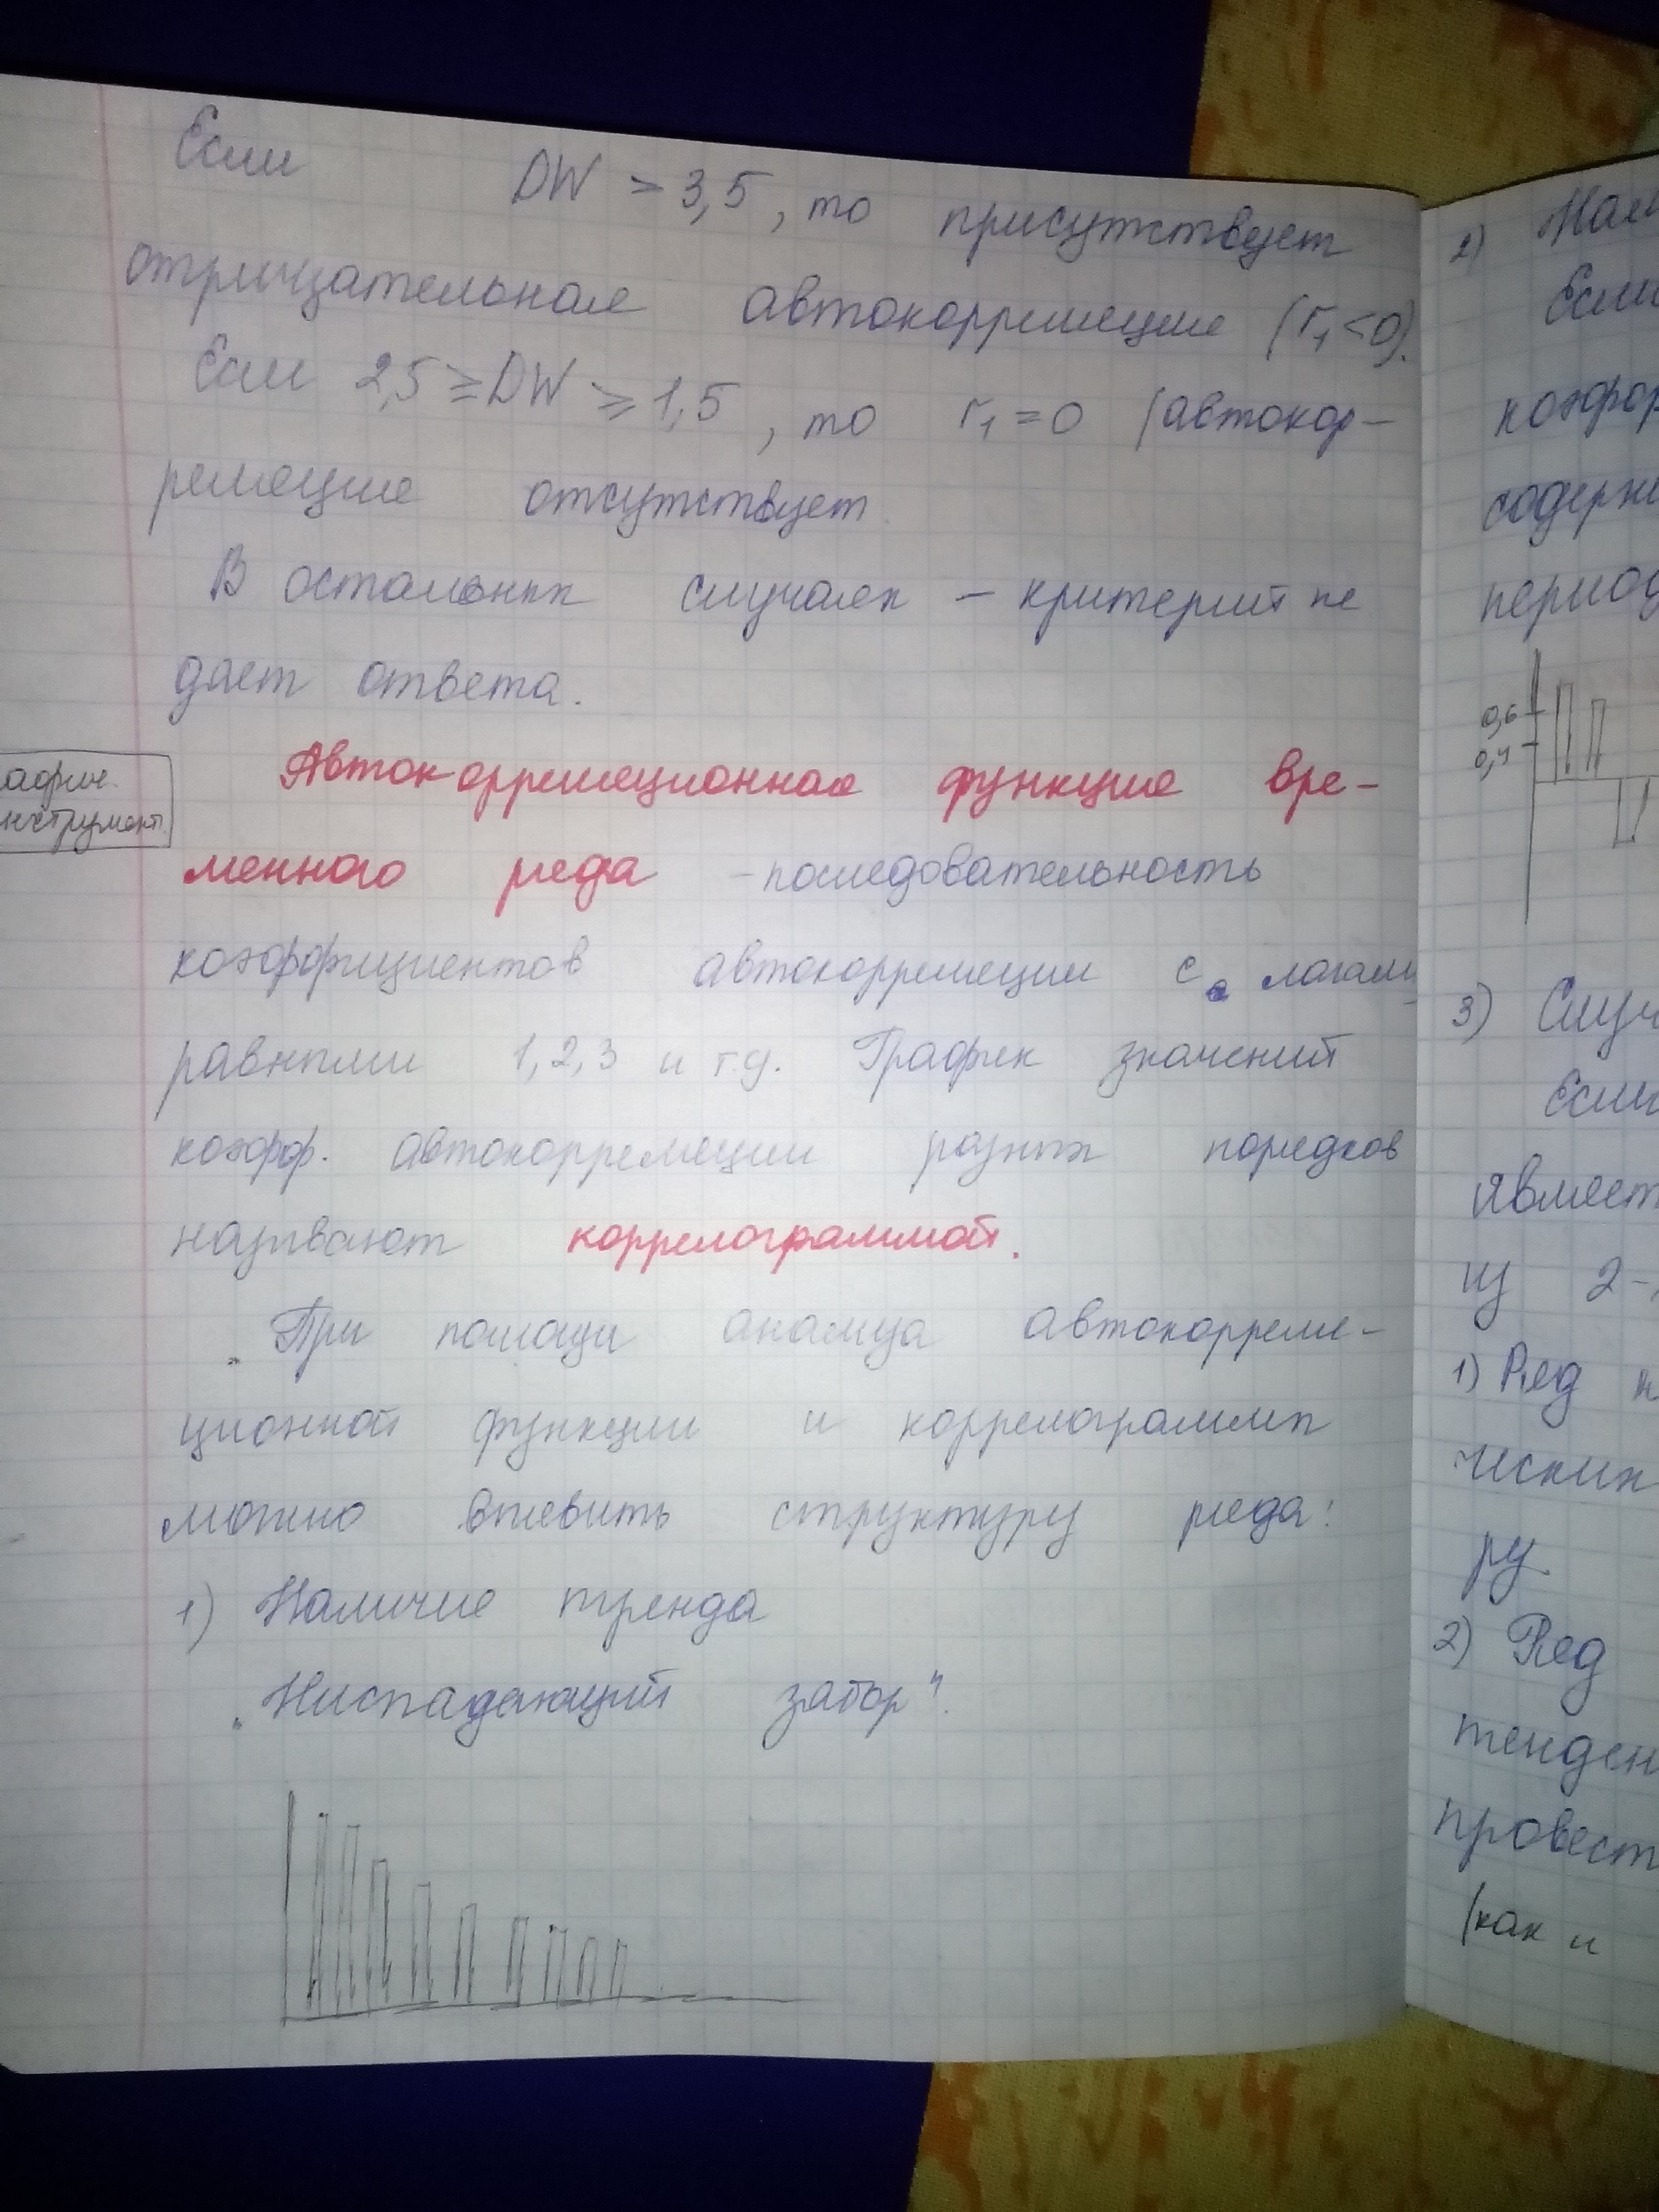 Если DW > 3,5, то присутствует
отрицательная автокорреляция (r₁<0).
Если 2,5 ≥ DW ≥ 1,5, то r₁=0 (автокор-
реляция отсутствует
В остальных случаях – критерий не
дает ответа.
Автокорреляционная функция вре-
менного ряда – последовательность
коэффициентов автокорреляции с лагами,
равными 1, 2, 3 и т.д. График значений
коэфф. автокорреляции разных порядков
называют коррелограммой.
При помощи анализа автокорреля-
ционной функции и коррелограммы
можно выявить структуру ряда:
1) Наличие тренда
„Ниспадающий забор".
2)
Если
0,6
0,4
3)
Если
из 2-
1) Ряд
ческих
ру
2) Ряд
(как и